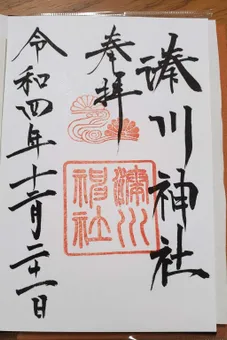 湊川神社
奉拝
湊川神社
令和四年十二月二十一日